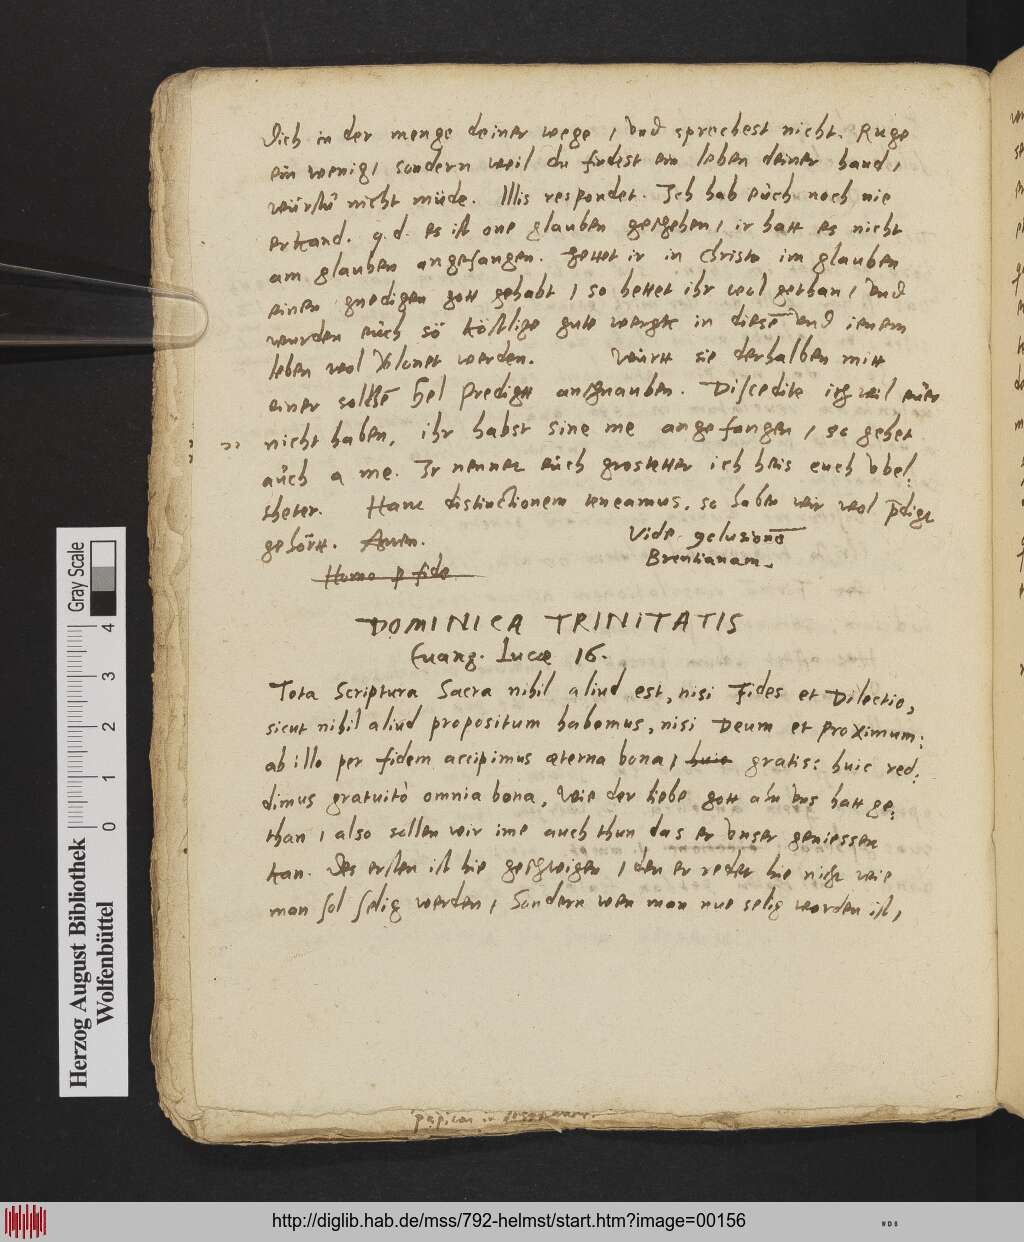 dich in der menge deiner wege, vnd sprechest nicht. Ruge
ein wenig, sondern weil du findest ein leben deiner hand,
würstu nicht müde. Illis respondet. Ich hab eüch noch nie
erkand. q.d. es ist one glauben geschehen, ir hatt es nicht
am glauben angefangen. hettet ir in Christo im glauben
einen gnedigen gott gehabt, so hettet ihr wol gethan, vnd
wurden eüch so köstlige gute wergk in diesē vnd ienem
leben wol belonet werden. württ sie derhalben mitt
einer solchē hel predigtt anschnauben. Discedite ich wil eüer
nicht haben, ihr habst sine me angefangen, so gehet
aüch a me. Ir nennet eüch grostetter ich heis euch vbel:
theter. Hanc distinctionem teneamus, so haben wir wol p̄dige
gehörtt. Amen. Vide 9clusionē
Brentianam.
Homo p fide
DOMINICA TRINITATIS
Euang. Lucæ 16.
Tota Scriptura Sacra nihil aliud est, nisi Fides et Dilectio,
sicut nihil aliud propositum habemus, nisi Deum et Proximum:
ab illo per fidem accipimus æterna bona, huic gratis: huic red:
dimus gratuitò omnia bona, Wie der liebe gott an vns hatt ge:
than, also sollen wir ime auch thun das er vnser geniessen
kan. Des ersten ist hie geschwigen, den er redet hie nicht wie
man sol selig werden, Sondern wen man nue selig worden ist,
Herzog August Bibliothek
Wolfenbüttel
Gray Scale
0 1 2 3 4
http://diglib.hab.de/mss/792-helmst/start.htm?image=00156